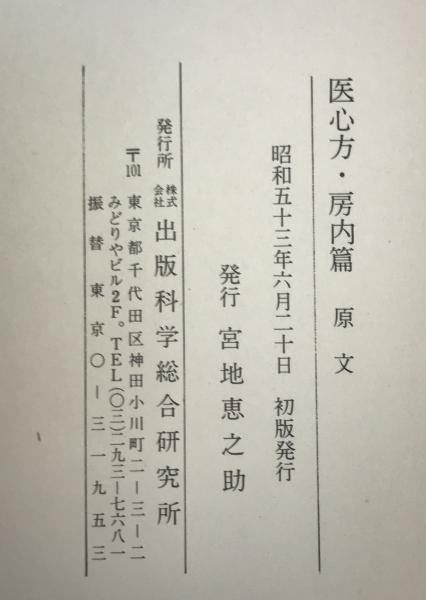 医心方・房内篇　原文
昭和五十三年六月二十日　初版発行
発行　宮地恵之助
発行所　株式会社　出版科学総合研究所
〒101　東京都千代田区神田小川町二―三―二
みどりやビル2F。TEL(〇三)二九三―七六八一
振替東京〇―三一九五三